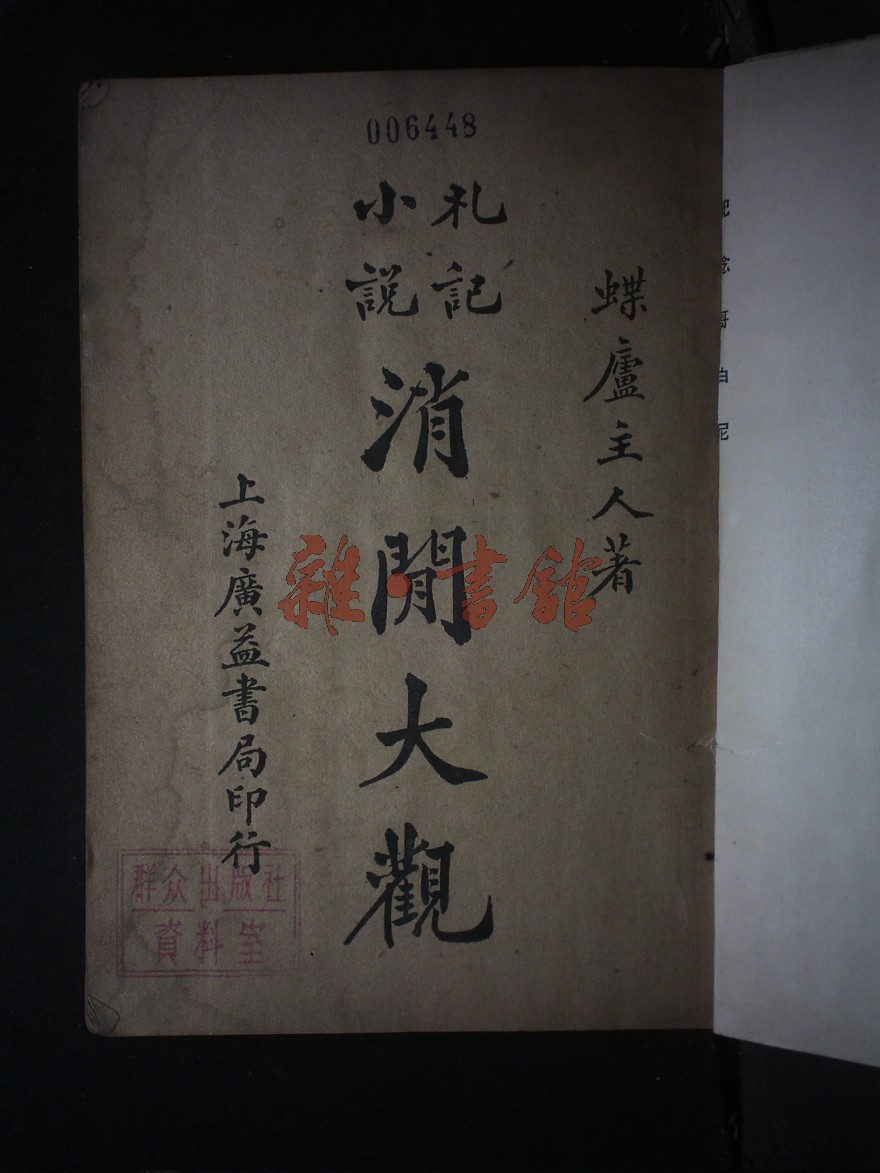 006448
蝶廬主人著
札記
小説
消閒大觀
上海廣益書局印行
群众出版社
資料室
雜·書館